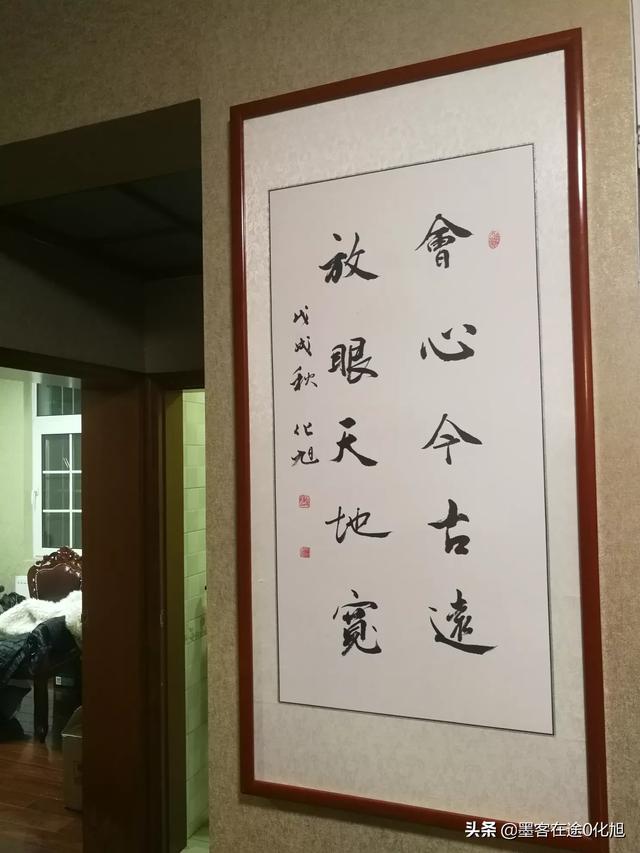 會心今古遠
放眼天地寬
戊戌秋 化旭
头条 @墨客在途0化旭